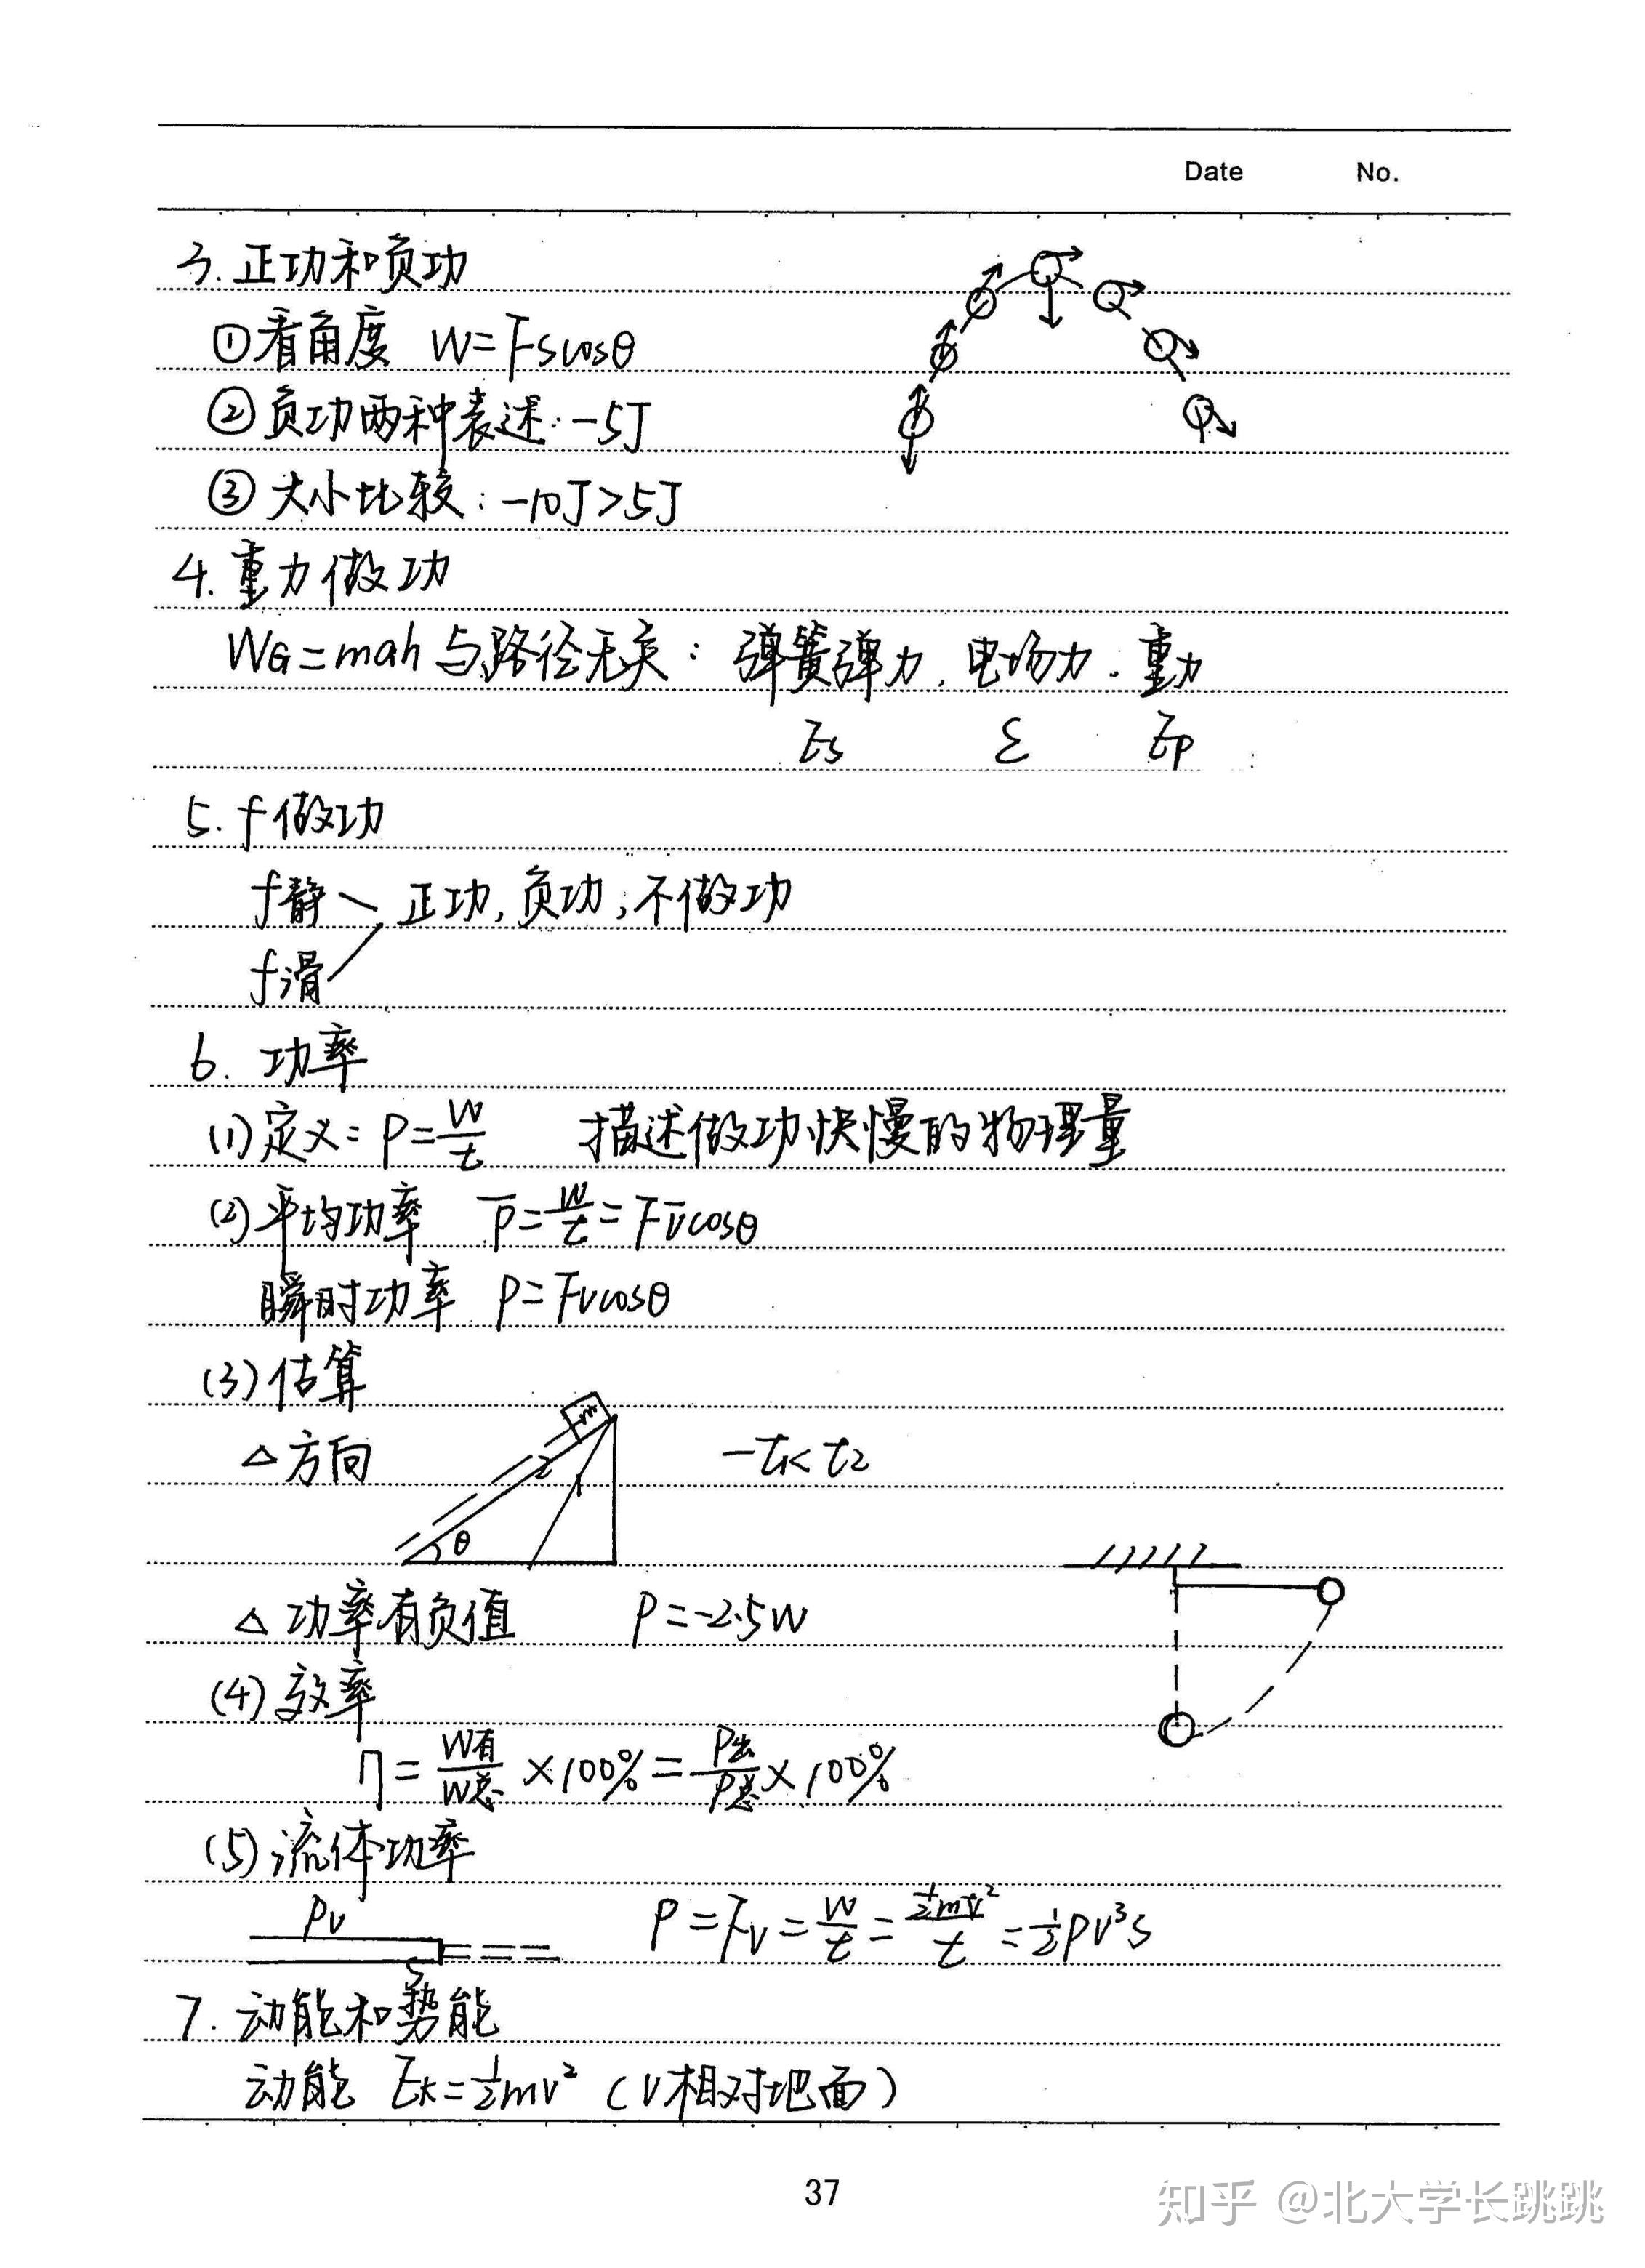 Date No.
3. 正功和负功
①看角度 W=Fscosθ
②负功两种表述: -5J
③大小比较: -10J>5J
4. 重力做功
WG=mgh 与路径无关: 弹簧弹力, 电场力, 重力
Es ε Ep
5. f做功
f静 正功, 负功, 不做功
f滑
6. 功率
(1)定义: P=W/t 描述做功快慢的物理量
(2)平均功率 P̄=W/t=Fv̄cosθ
瞬时功率 P=Fvcosθ
(3)估算
m
△方向 2 1 θ -t₁<t₂
△功率有负值 P=-2.5W
(4)效率
η=W有/W总×100%=P出/P总×100%
(5)流体功率
ρv
S
P=Fv=W/t=½mv²/t=½ρv³S
7. 动能和势能
动能 Ek=½mv² (v相对地面)
37
知乎 @北大学长跳跳